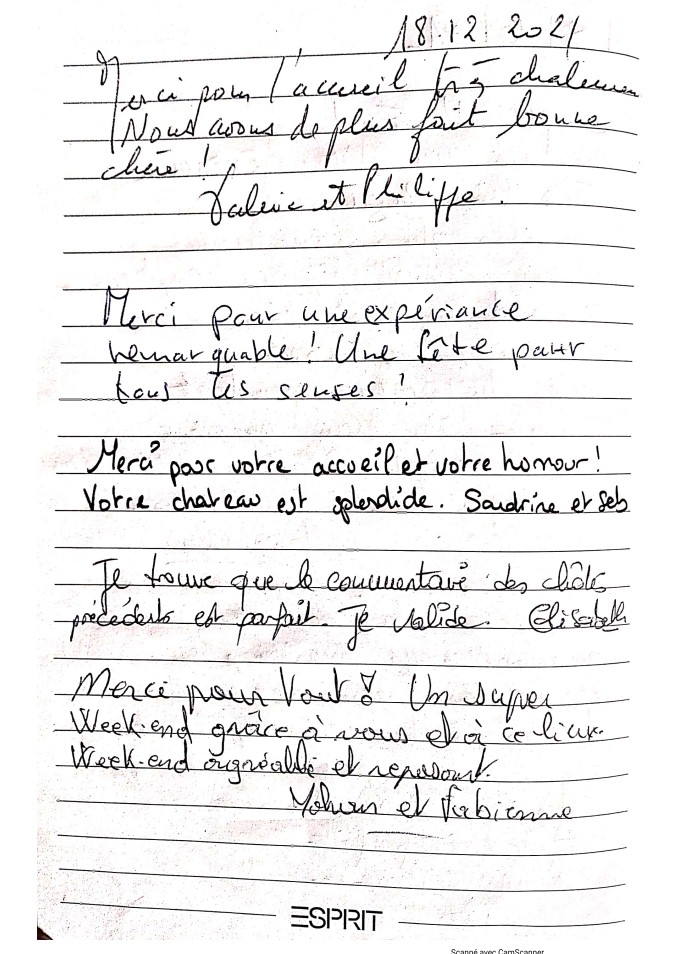 18.12 2021
Merci pour l'accueil très chaleureux
Nous avons de plus fait bonne
chère !
Valérie et Philippe.
Merci pour une expériance
remarquable ! Une fête pour
tous les senses !
Merci pour votre accueil et votre humour !
Votre chateau est splendide. Sandrine et Seb
Je trouve que le commentaire des
précédents est parfait. Je valide. Elisabeth
Merci pour tout ! Un super
Week-end grâce à vous et à ce lieu.
Week-end agréable et reposant.
et Fabienne
ESPRIT
Scanné avec CamScanner